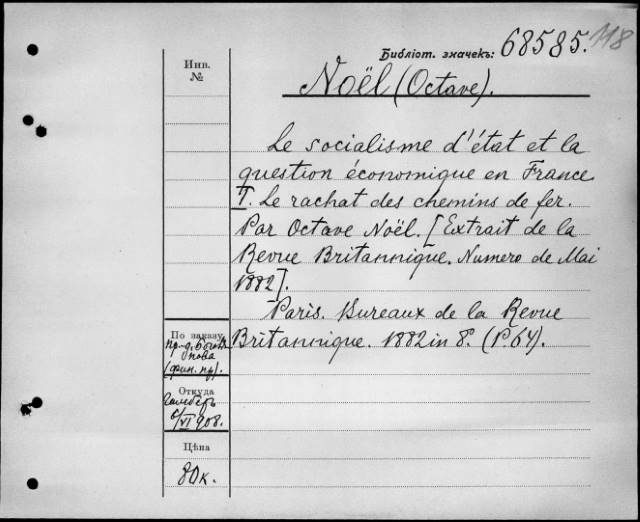 Библіот. значекъ: 68585. 118
Инв.
№
Noël (Octave).
Le socialisme d'état et la
question économique en France
I. Le rachat des chemins de fer.
Par Octave Noël. [Extrait de la
Revue Britannique. Numero de Mai
1882].
Paris. Bureaux de la Revue
Britannique. 1882 in 8º. (P. 64).
По заказу
(фин. пр).
Откуда
6/VI 908.
Цѣна
80 к.